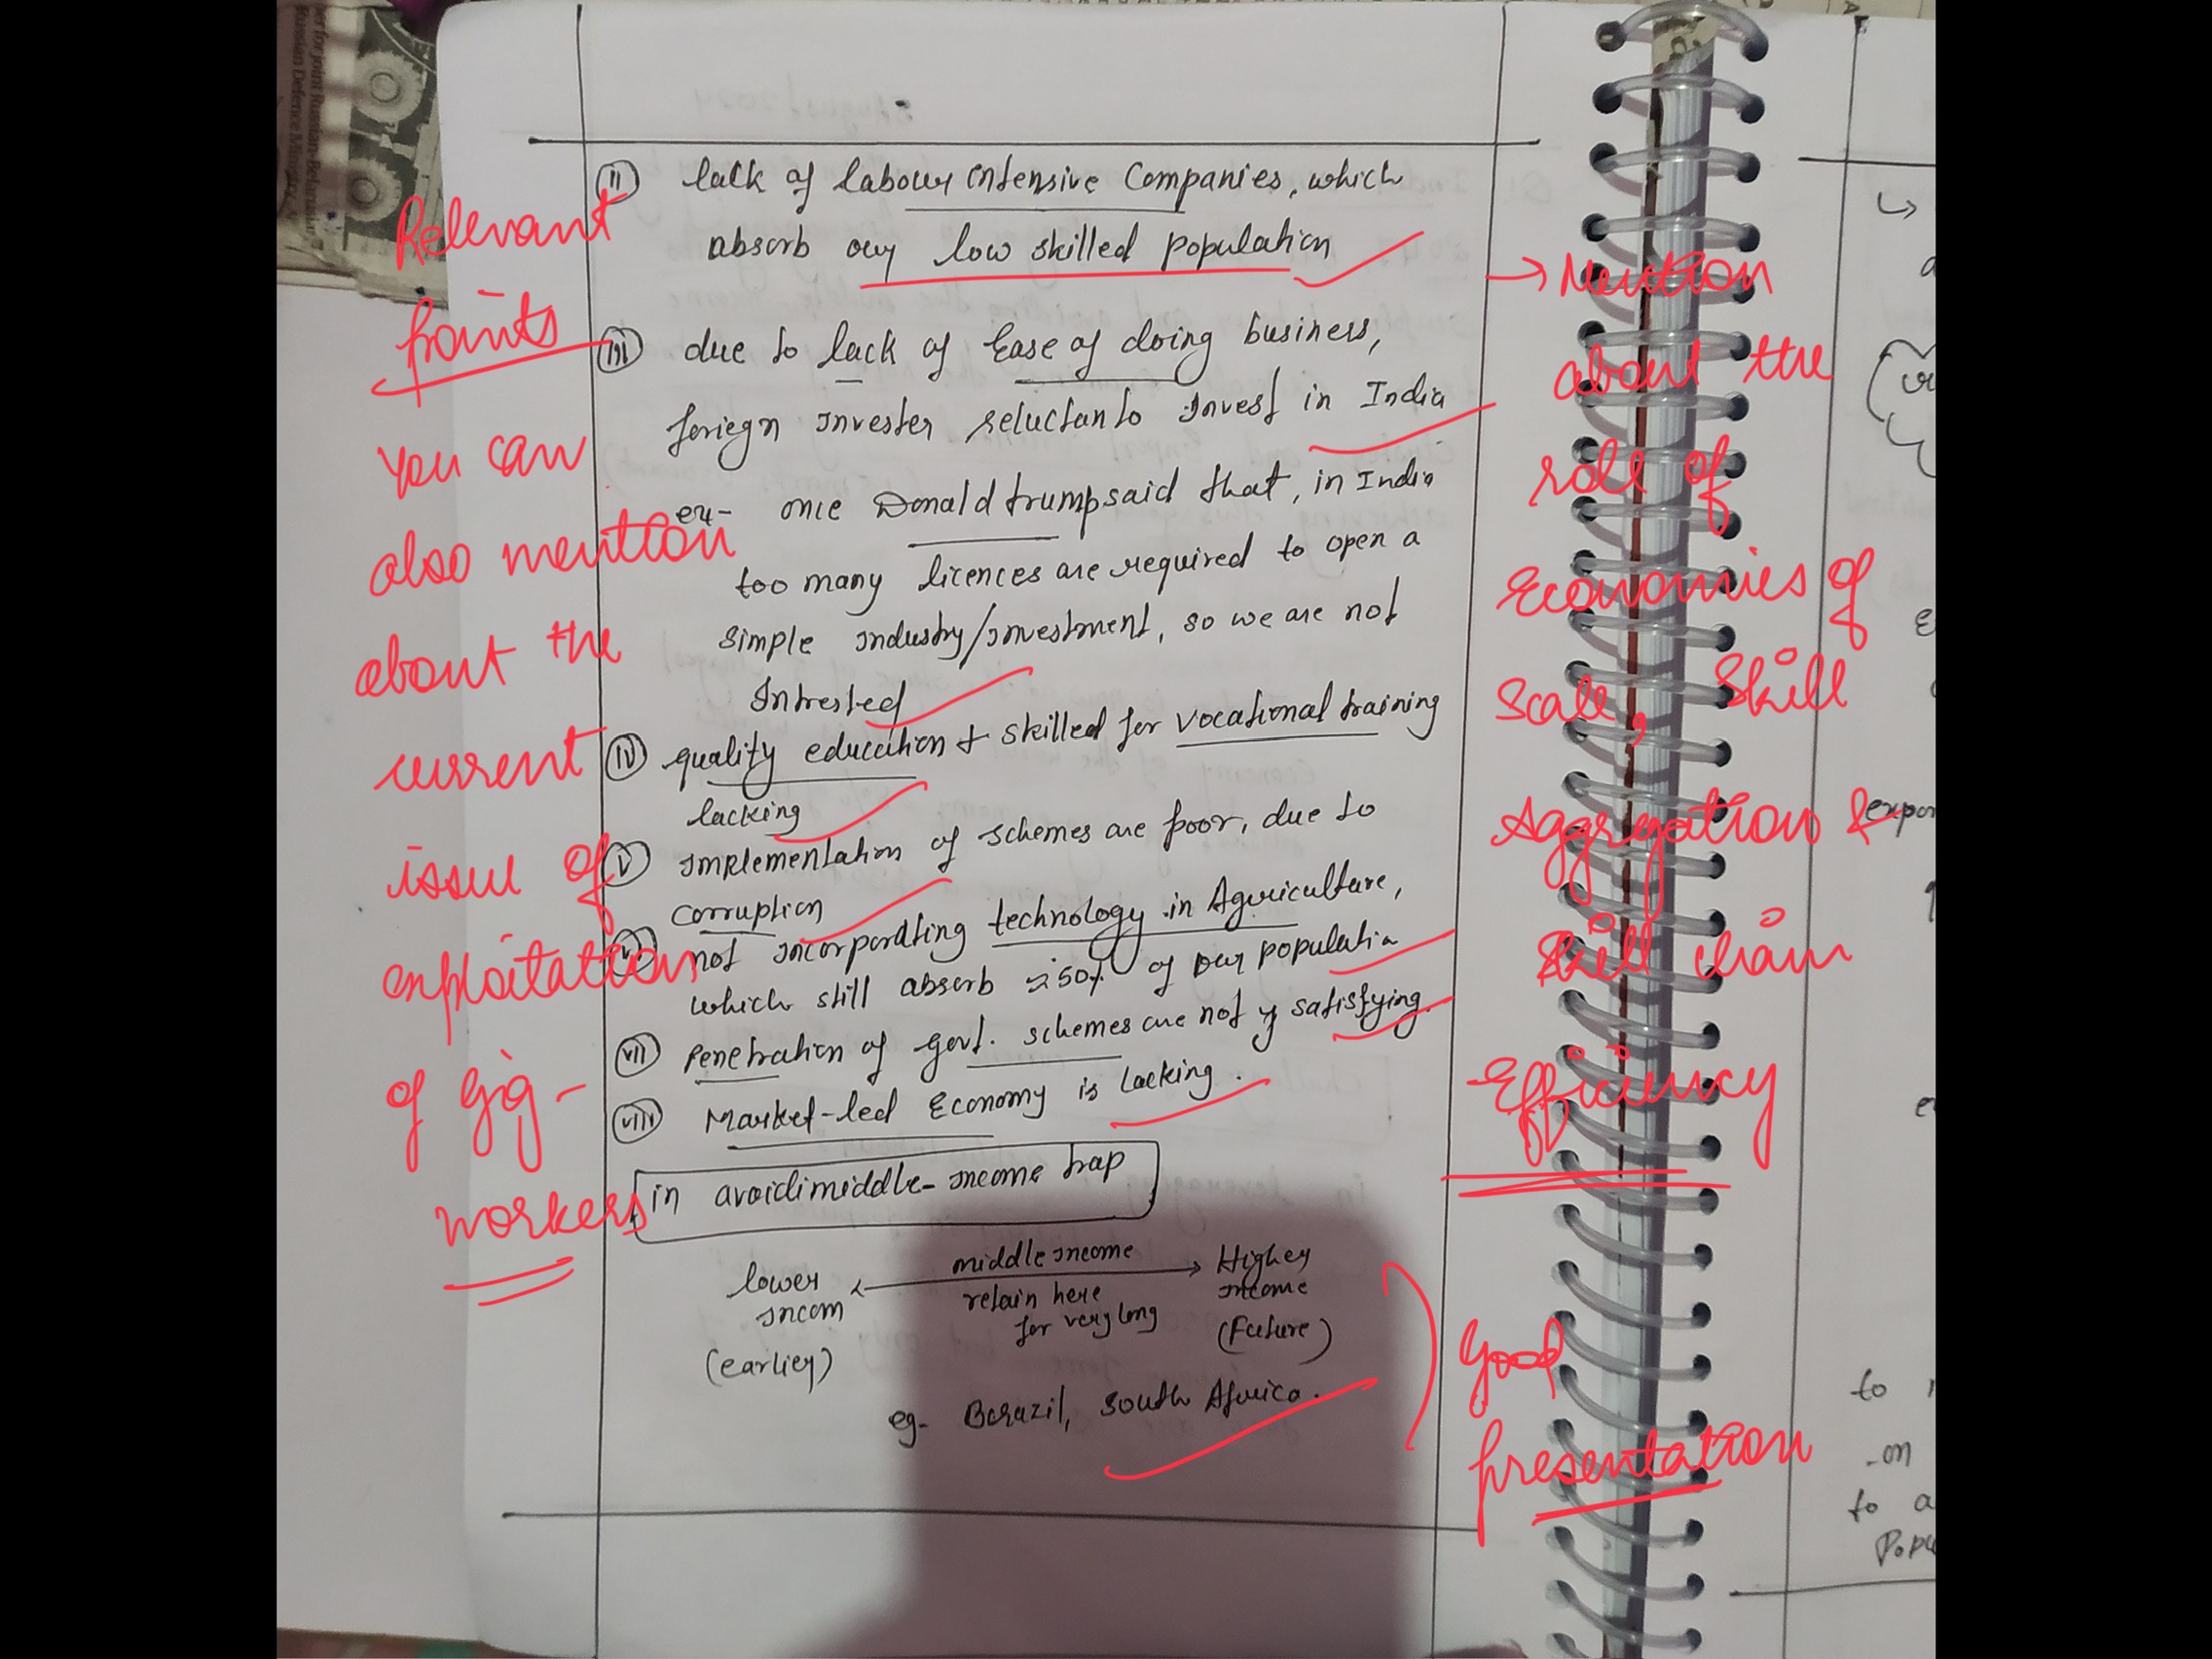 per for joint Russian-Belarusian
Russian Defence Ministry
Relevant
points
You can
also mention
about the
current
issue of
exploitation
of gig-
workers
ii) lack of labour intensive Companies, which
absorb our low skilled population
iii) due to lack of Ease of doing business,
foriegn invester reluctant to invest in India
ex- once Donald trump said that, in India
too many licences are required to open a
simple industry/investment, so we are not
Intrested
iv) quality education + skilled for vocational training
lacking
v) implementation of schemes are poor, due to
corruption
vi) not incorporating technology in Agriculture,
which still absorb ≈50% of our population
vii) Penetration of govt. schemes are not satisfying.
viii) Market-led Economy is lacking.
in avoidimiddle-income trap
lower
incom
(earlier)
middle income
retain here
for very long
Higher
income
(Future)
eg- Barazil, South Africa.
→ Mention
about the
role of
Economies of
Scale, Skill
Aggregation &
Skill chain
Efficiency
Good
presentation
expor
to
-on
to a
Popu